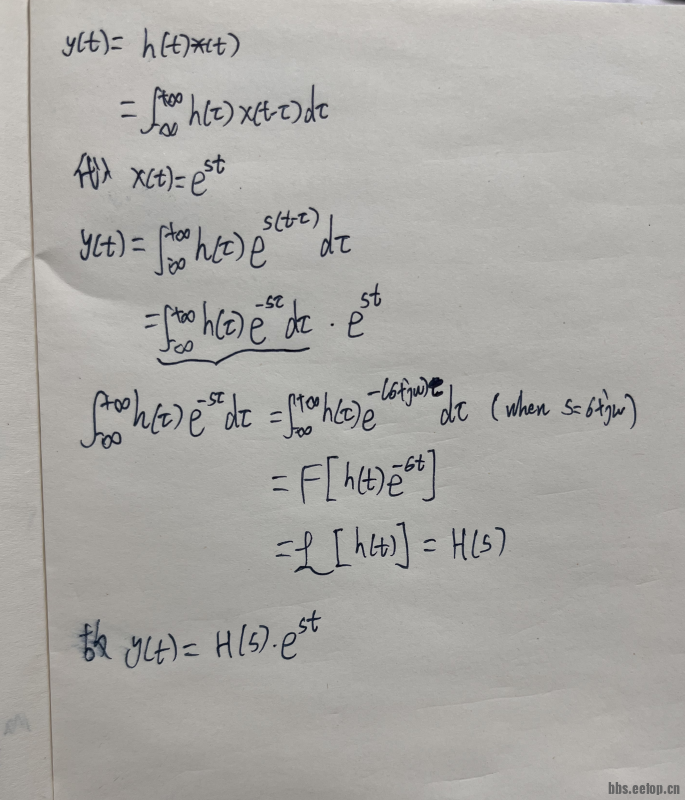 y(t)= h(t)*x(t)
=∫_{-∞}^{+∞} h(τ)x(t-τ)dτ
代入 x(t)=e^{st}
y(t)=∫_{-∞}^{+∞} h(τ)e^{s(t-τ)}dτ
=∫_{-∞}^{+∞} h(τ)e^{-sτ}dτ · e^{st}
∫_{-∞}^{+∞} h(τ)e^{-sτ}dτ =∫_{-∞}^{+∞} h(τ)e^{-(σ+jω)τ}dτ (when s=σ+jω)
= F[h(t)e^{-σt}]
=ℒ[h(t)] = H(s)
故 y(t)= H(s)·e^{st}
bbs.eetop.cn